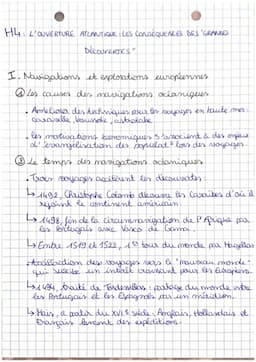 H4: L'OUVERTURE ATLANTIQUE : LES CONSÉQUENCES DES "GRANDES
DÉCOUVERTES"
I. Navigations et explorations européennes
① Les causes des navigations océaniques
• Amélioration des techniques pour les voyages en haute mer :
caravelle, boussole, astrolabe.
• Les motivations économiques s'associent à des enjeux
d'évangélisation des populat° lors des voyages.
② Le temps des navigations océaniques
• Trois voyages accélèrent les découvertes :
↳ 1492, Christophe Colomb découvre les Caraïbes d'où il
rejoint le continent américain.
↳ 1498, fin de la circumnavigation de l'Afrique par
les Portugais avec Vasco de Gama.
↳ Entre 1519 et 1522, 1er tour du monde par Magellan
• Accélération des voyages vers le "nouveau monde"
qui suscite un intérêt croissant pour les Européens.
↳ 1494, traité de Tordesillas : partage du monde entre
les Portugais et les Espagnols par un méridien.
↳ Mais, à partir du XVIe siècle, Anglais, Hollandais et
Français lancent des expéditions.